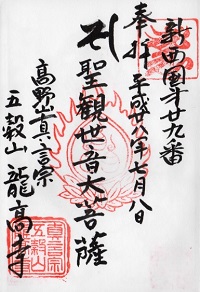 新西国第廿九番
奉拝 平成廿八年七月八日
聖観世音大菩薩
高野山真言宗
五穀山 龍高寺
真言宗
五穀山